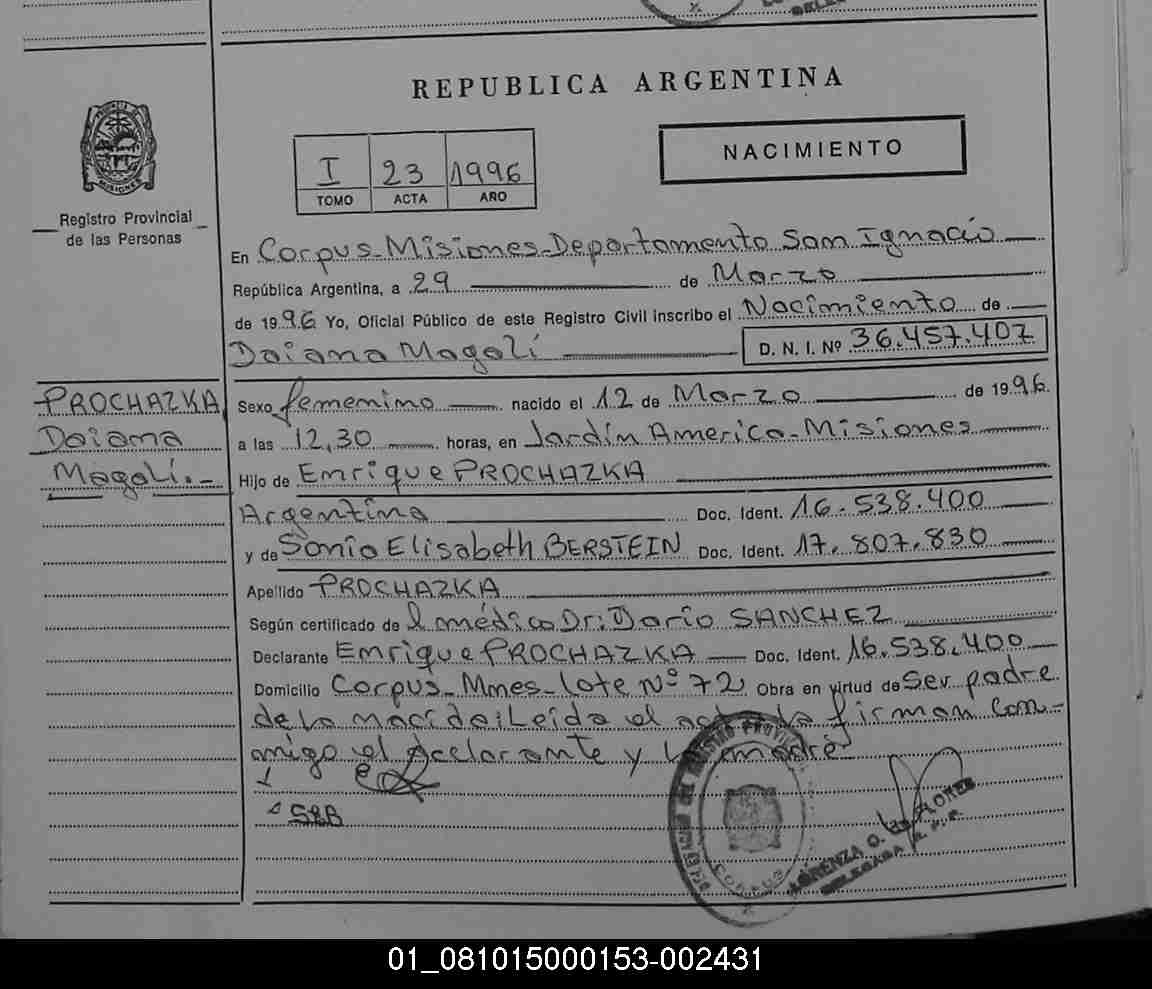 REPUBLICA ARGENTINA
NACIMIENTO
I 23 1996
TOMO ACTA AÑO
MISIONES
Registro Provincial
de las Personas
En Corpus-Misiones-Departamento San Ignacio
República Argentina, a 29 de Marzo
de 1996 Yo, Oficial Público de este Registro Civil inscribo el Nacimiento de
Daiana Magalí D. N. I. Nº 36.457.407
PROCHAZKA
Daiana
Magalí.-
Sexo femenino nacido el 12 de Marzo de 1996.
a las 12,30 horas, en Jardín America-Misiones
Hijo de Enrique PROCHAZKA
Argentina Doc. Ident. 16.538.400
y de Sonia Elisabeth BERSTEIN Doc. Ident. 17.807.830
Apellido PROCHAZKA
Según certificado de l médico Dr: Dario SANCHEZ
Declarante Enrique PROCHAZKA Doc. Ident. 16.538.400
Domicilio Corpus-Mnes-Lote Nº 72 Obra en virtud de Ser padre
de la nacida: Leida el acta la firman con-
migo el declarante y la madre
SEB
CORPUS
LORENZA O. DE FLORES
DELEGADA R. P. P.
01_081015000153-002431